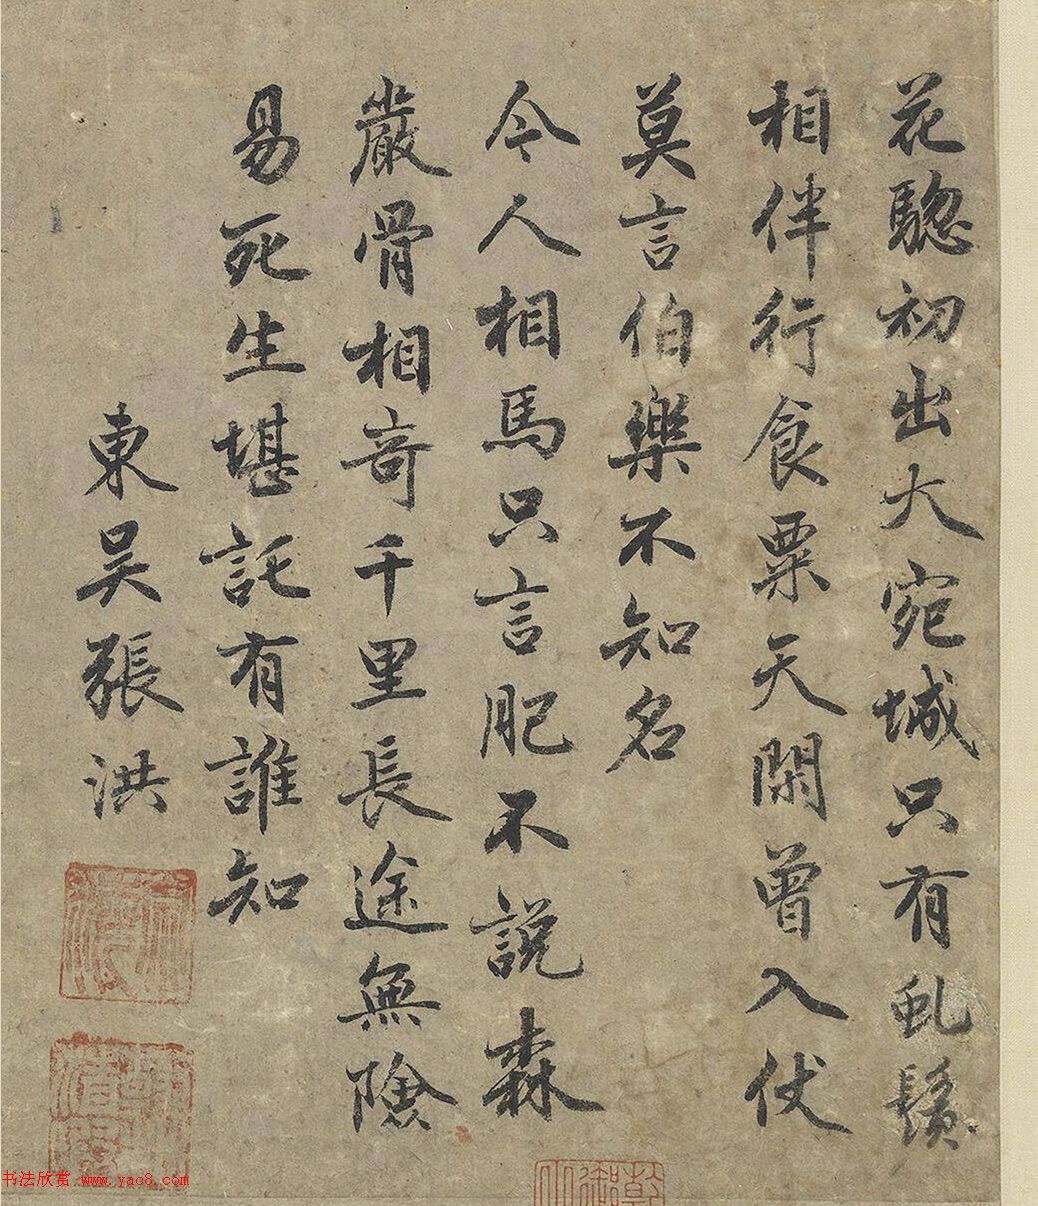 花驄初出大宛城只有虬鬚
相伴行食粟天閑曾入伏
莫言伯樂不知名
今人相馬只言肥不說森
嚴骨相奇千里長途無險
易死生堪託有誰知
東吴張洪
书法欣赏 www.yac8.com